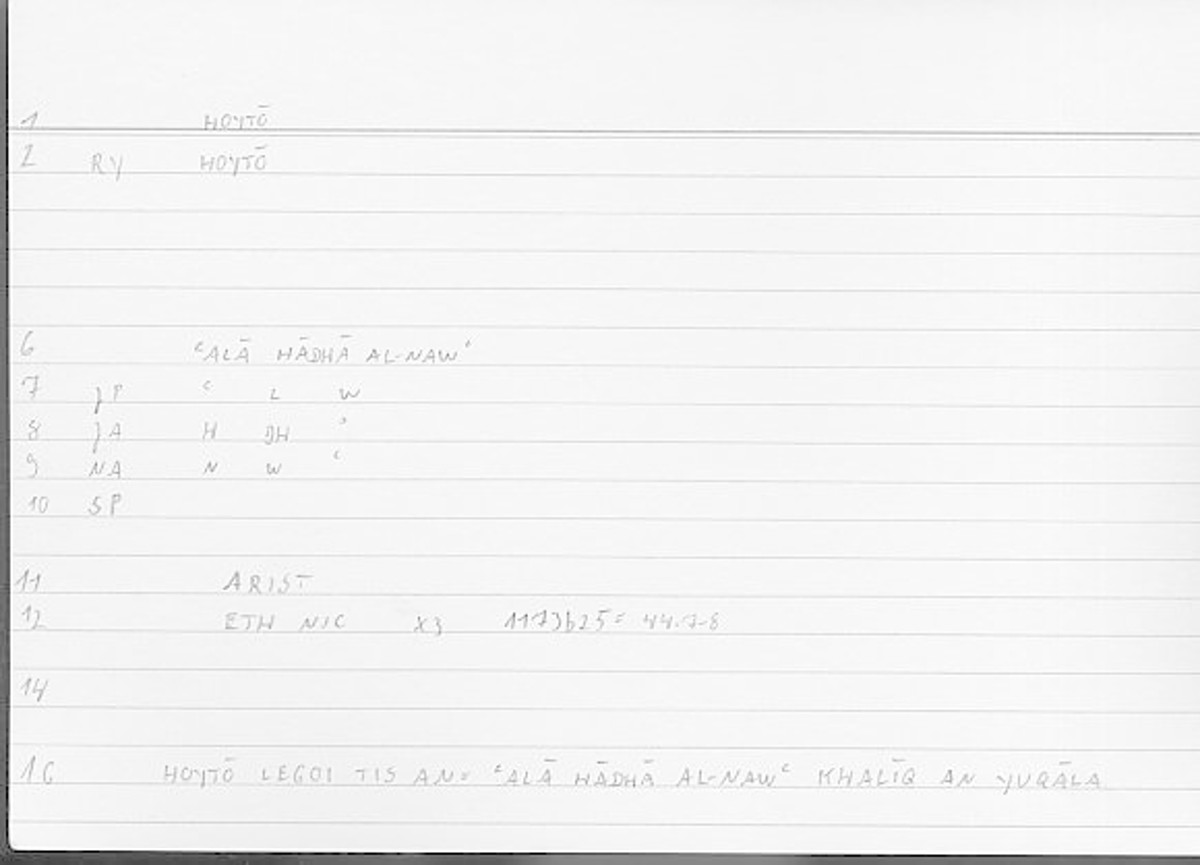 1 HOYTŌ
2 RY HOYTŌ
6 ʿALĀ HĀDHĀ AL-NAWʿ
7 JP ʿ L W
8 JA H DH ʾ
9 NA N W ʿ
10 SP
11 ARIST
12 ETH NIC X3 1173b25= 44.7-8
14
16 HOYTŌ LEGOI TIS AN= ʿALĀ HĀDHĀ AL-NAWʿ KHALĪQ AN YUQĀLA